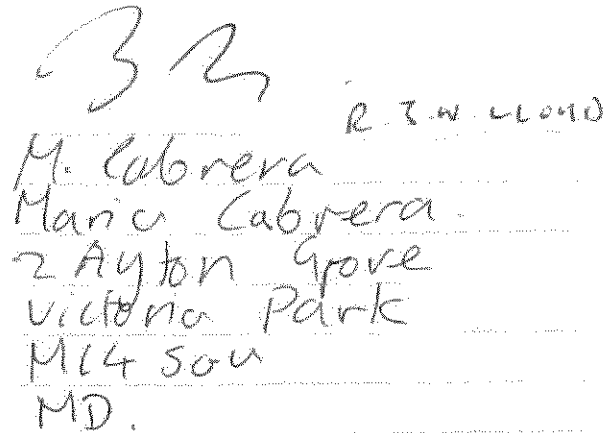 R J W LLOYD
M. Cabrera
Maria Cabrera.
2 Ayton Grove
Victoria Park
M14 5au
MD.